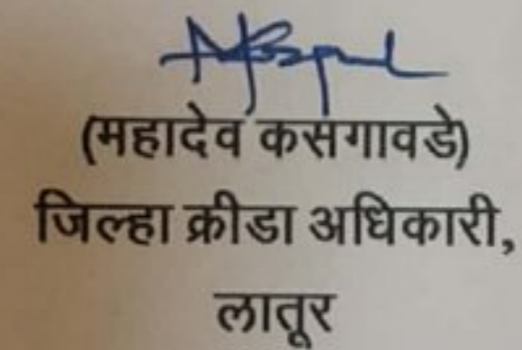 (महादेव कसगावडे)
जिल्हा क्रीडा अधिकारी,
लातूर